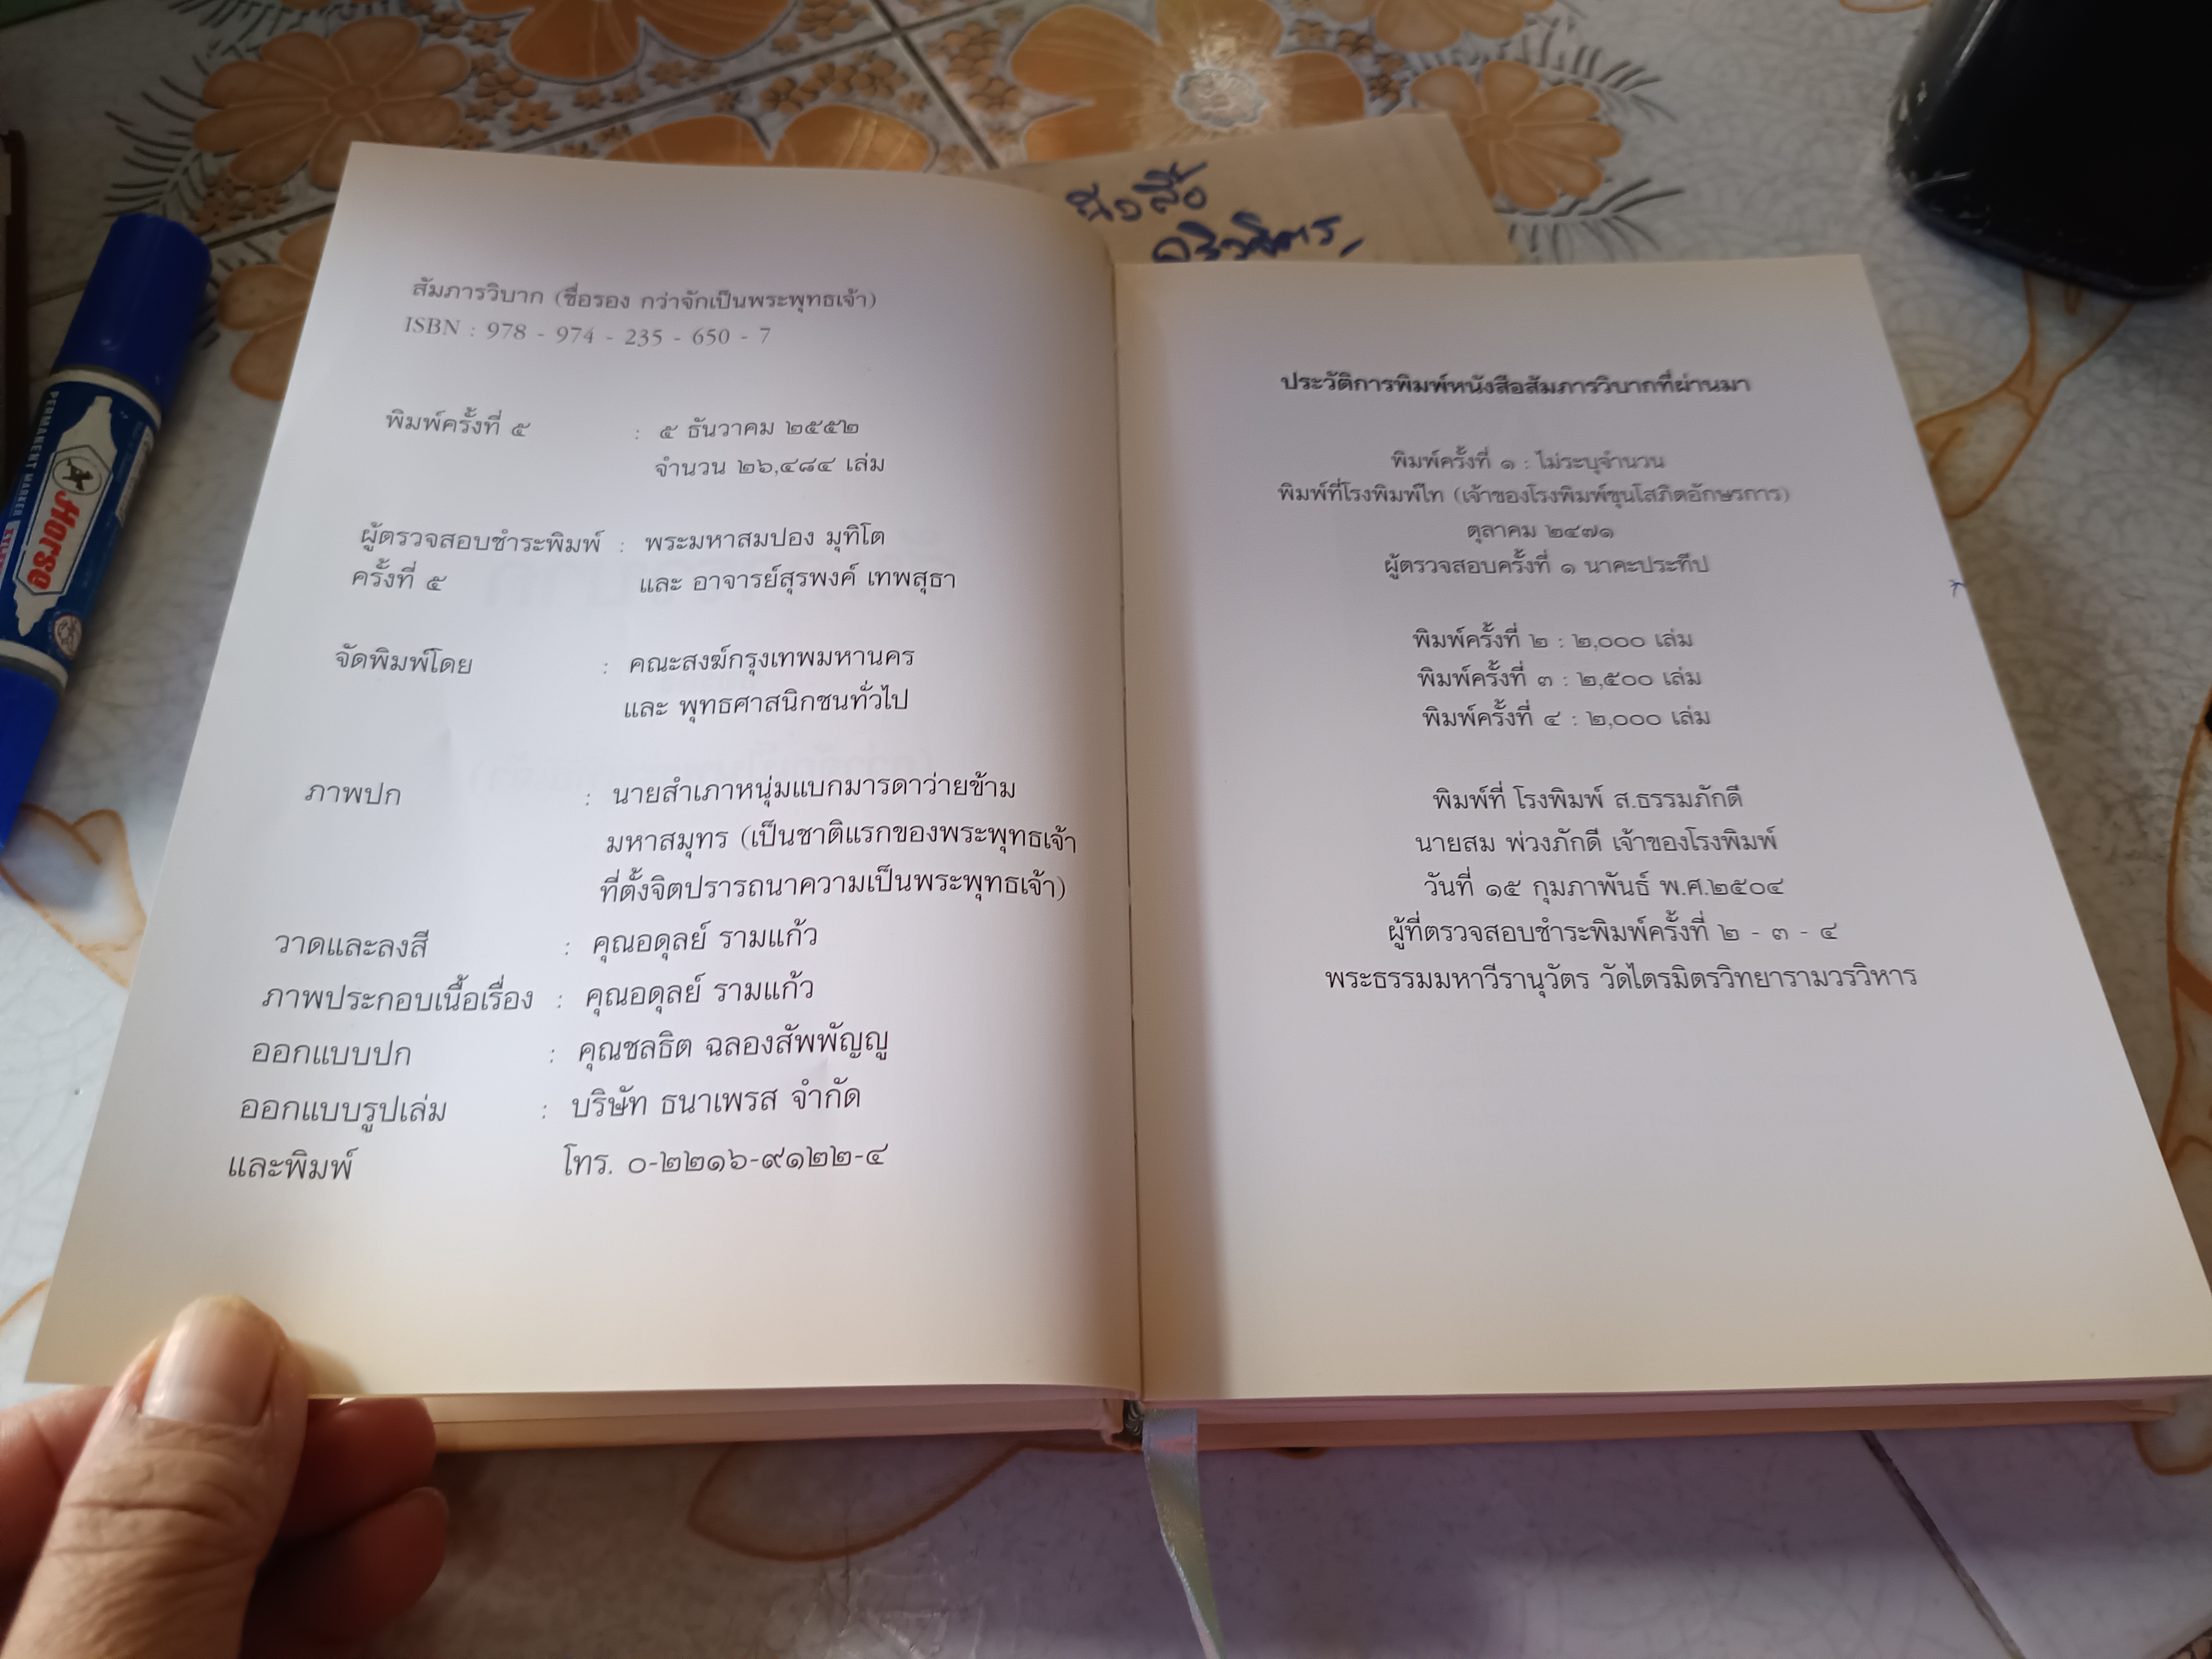 สัมภารวิบาก (ชื่อรอง กว่าจักเป็นพระพุทธเจ้า)
ISBN : 978 - 974 - 235 - 650 - 7
พิมพ์ครั้งที่ ๕ : ๕ ธันวาคม ๒๕๕๒
จำนวน ๒๖,๔๘๔ เล่ม
ผู้ตรวจสอบชำระพิมพ์ : พระมหาสมปอง มุทิโต
ครั้งที่ ๕ และ อาจารย์สุรพงค์ เทพสุธา
จัดพิมพ์โดย : คณะสงฆ์กรุงเทพมหานคร
และ พุทธศาสนิกชนทั่วไป
ภาพปก : นายสำเภาหนุ่มแบกมารดาว่ายข้าม
มหาสมุทร (เป็นชาติแรกของพระพุทธเจ้า
ที่ตั้งจิตปรารถนาความเป็นพระพุทธเจ้า)
วาดและลงสี : คุณอดุลย์ รามแก้ว
ภาพประกอบเนื้อเรื่อง : คุณอดุลย์ รามแก้ว
ออกแบบปก : คุณชลธิต ฉลองสัพพัญญู
ออกแบบรูปเล่ม : บริษัท ธนาเพรส จำกัด
และพิมพ์ โทร. ๐-๒๒๑๖-๙๑๒๒-๔
ประวัติการพิมพ์หนังสือสัมภารวิบากที่ผ่านมา
พิมพ์ครั้งที่ ๑ : ไม่ระบุจำนวน
พิมพ์ที่โรงพิมพ์ไท (เจ้าของโรงพิมพ์ขุนโสภิตอักษรการ)
ตุลาคม ๒๔๗๑
ผู้ตรวจสอบครั้งที่ ๑ นาคะประทีป
พิมพ์ครั้งที่ ๒ : ๒,๐๐๐ เล่ม
พิมพ์ครั้งที่ ๓ : ๒,๕๐๐ เล่ม
พิมพ์ครั้งที่ ๔ : ๒,๐๐๐ เล่ม
พิมพ์ที่ โรงพิมพ์ ส.ธรรมภักดี
นายสม พ่วงภักดี เจ้าของโรงพิมพ์
วันที่ ๑๕ กุมภาพันธ์ พ.ศ.๒๕๐๔
ผู้ที่ตรวจสอบชำระพิมพ์ครั้งที่ ๒ - ๓ - ๔
พระธรรมมหาวีรานุวัตร วัดไตรมิตรวิทยารามวรวิหาร
PERMANENT MARKER
Horse